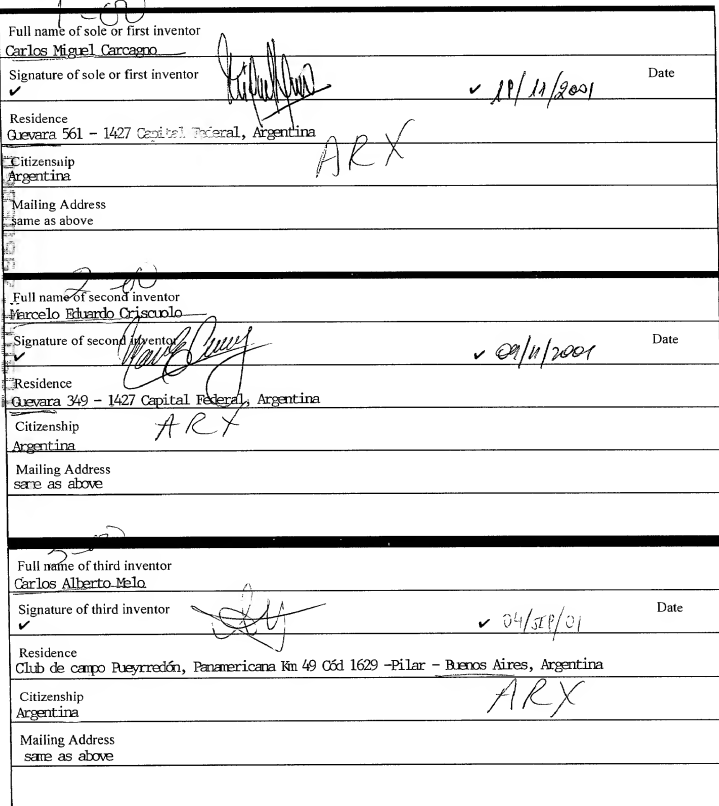 1-00
Full name of sole or first inventor
Carlos Miguel Carcagno
Signature of sole or first inventor
Date
✔ 19/11/2001
Residence
Guevara 561 - 1427 Capital Federal, Argentina
ARX
Citizenship
Argentina
Mailing Address
same as above
2-00
Full name of second inventor
Marcelo Eduardo Criscuolo
Signature of second inventor
Date
✔ 09/11/2001
Residence
Guevara 349 - 1427 Capital Federal, Argentina
Citizenship
ARX
Argentina
Mailing Address
same as above
3-00
Full name of third inventor
Carlos Alberto Melo
Signature of third inventor
Date
✔ 04/SEP/01
Residence
Club de campo Pueyrredón, Panamericana Km 49 Cód 1629 -Pilar - Buenos Aires, Argentina
Citizenship
ARX
Argentina
Mailing Address
same as above